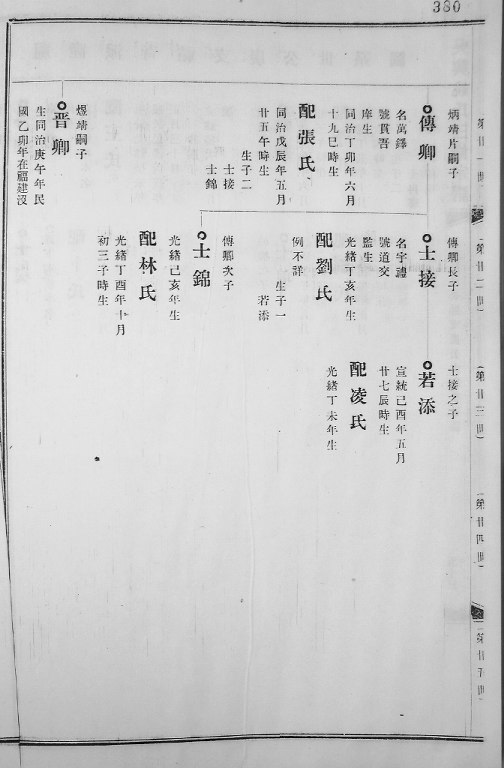 380
第廿一世
第廿二世
第廿三世
第廿四世
第廿五世
炳靖片嗣子
傳卿
名萬鎰
號貫吾
庠生
同治丁卯年六月
十九巳時生
配張氏
同治戊辰年五月
廿五午時生
生子二
士接
士錦
煜靖嗣子
晋卿
生同治庚午年民
國乙卯年在福建沒
傳卿長子
士接
名宇禮
號道交
監生
光緒丁亥年生
配劉氏
例不詳
生子一
若添
傳卿次子
士錦
光緒己亥年生
配林氏
光緒丁酉年十月
初三子時生
士接之子
若添
宣統己酉年五月
廿七辰時生
配凌氏
光緒丁未年生